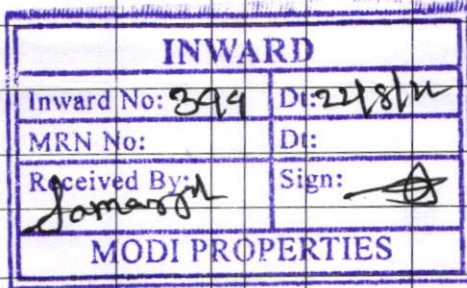 INWARD
Inward No: 394 Dt: 22/8/22
MRN No: Dt:
Received By: Sign:
MODI PROPERTIES